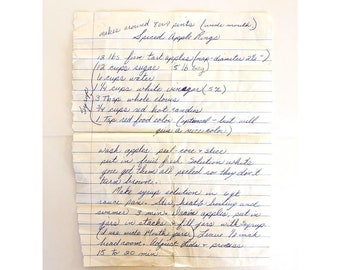 makes around 8 or 9 pints (wide mouth)
Spiced Apple Rings
12 lbs firm tart apples (max-diameter 2½")
12 cups sugar 5 lb bag
6 cups water
1¼ cups white vinegar (5%)
3 Tbsp whole cloves
¾ cups red hot candies
1 Tsp red food color (optional - but will
give a nice color)
wash apples peel-core & slice
put in fruit fresh solution while
you get them all peeled so they don't
turn brown.
Make syrup solution in 6 qt
sauce pan. Stir, heat to boiling and
simmer 3 min. Drain apples, put in
jars in stacks & fill jars with syrup
(I use wide mouth jars) Leave ½ inch
headroom. Adjust lids & process
15 to 20 min